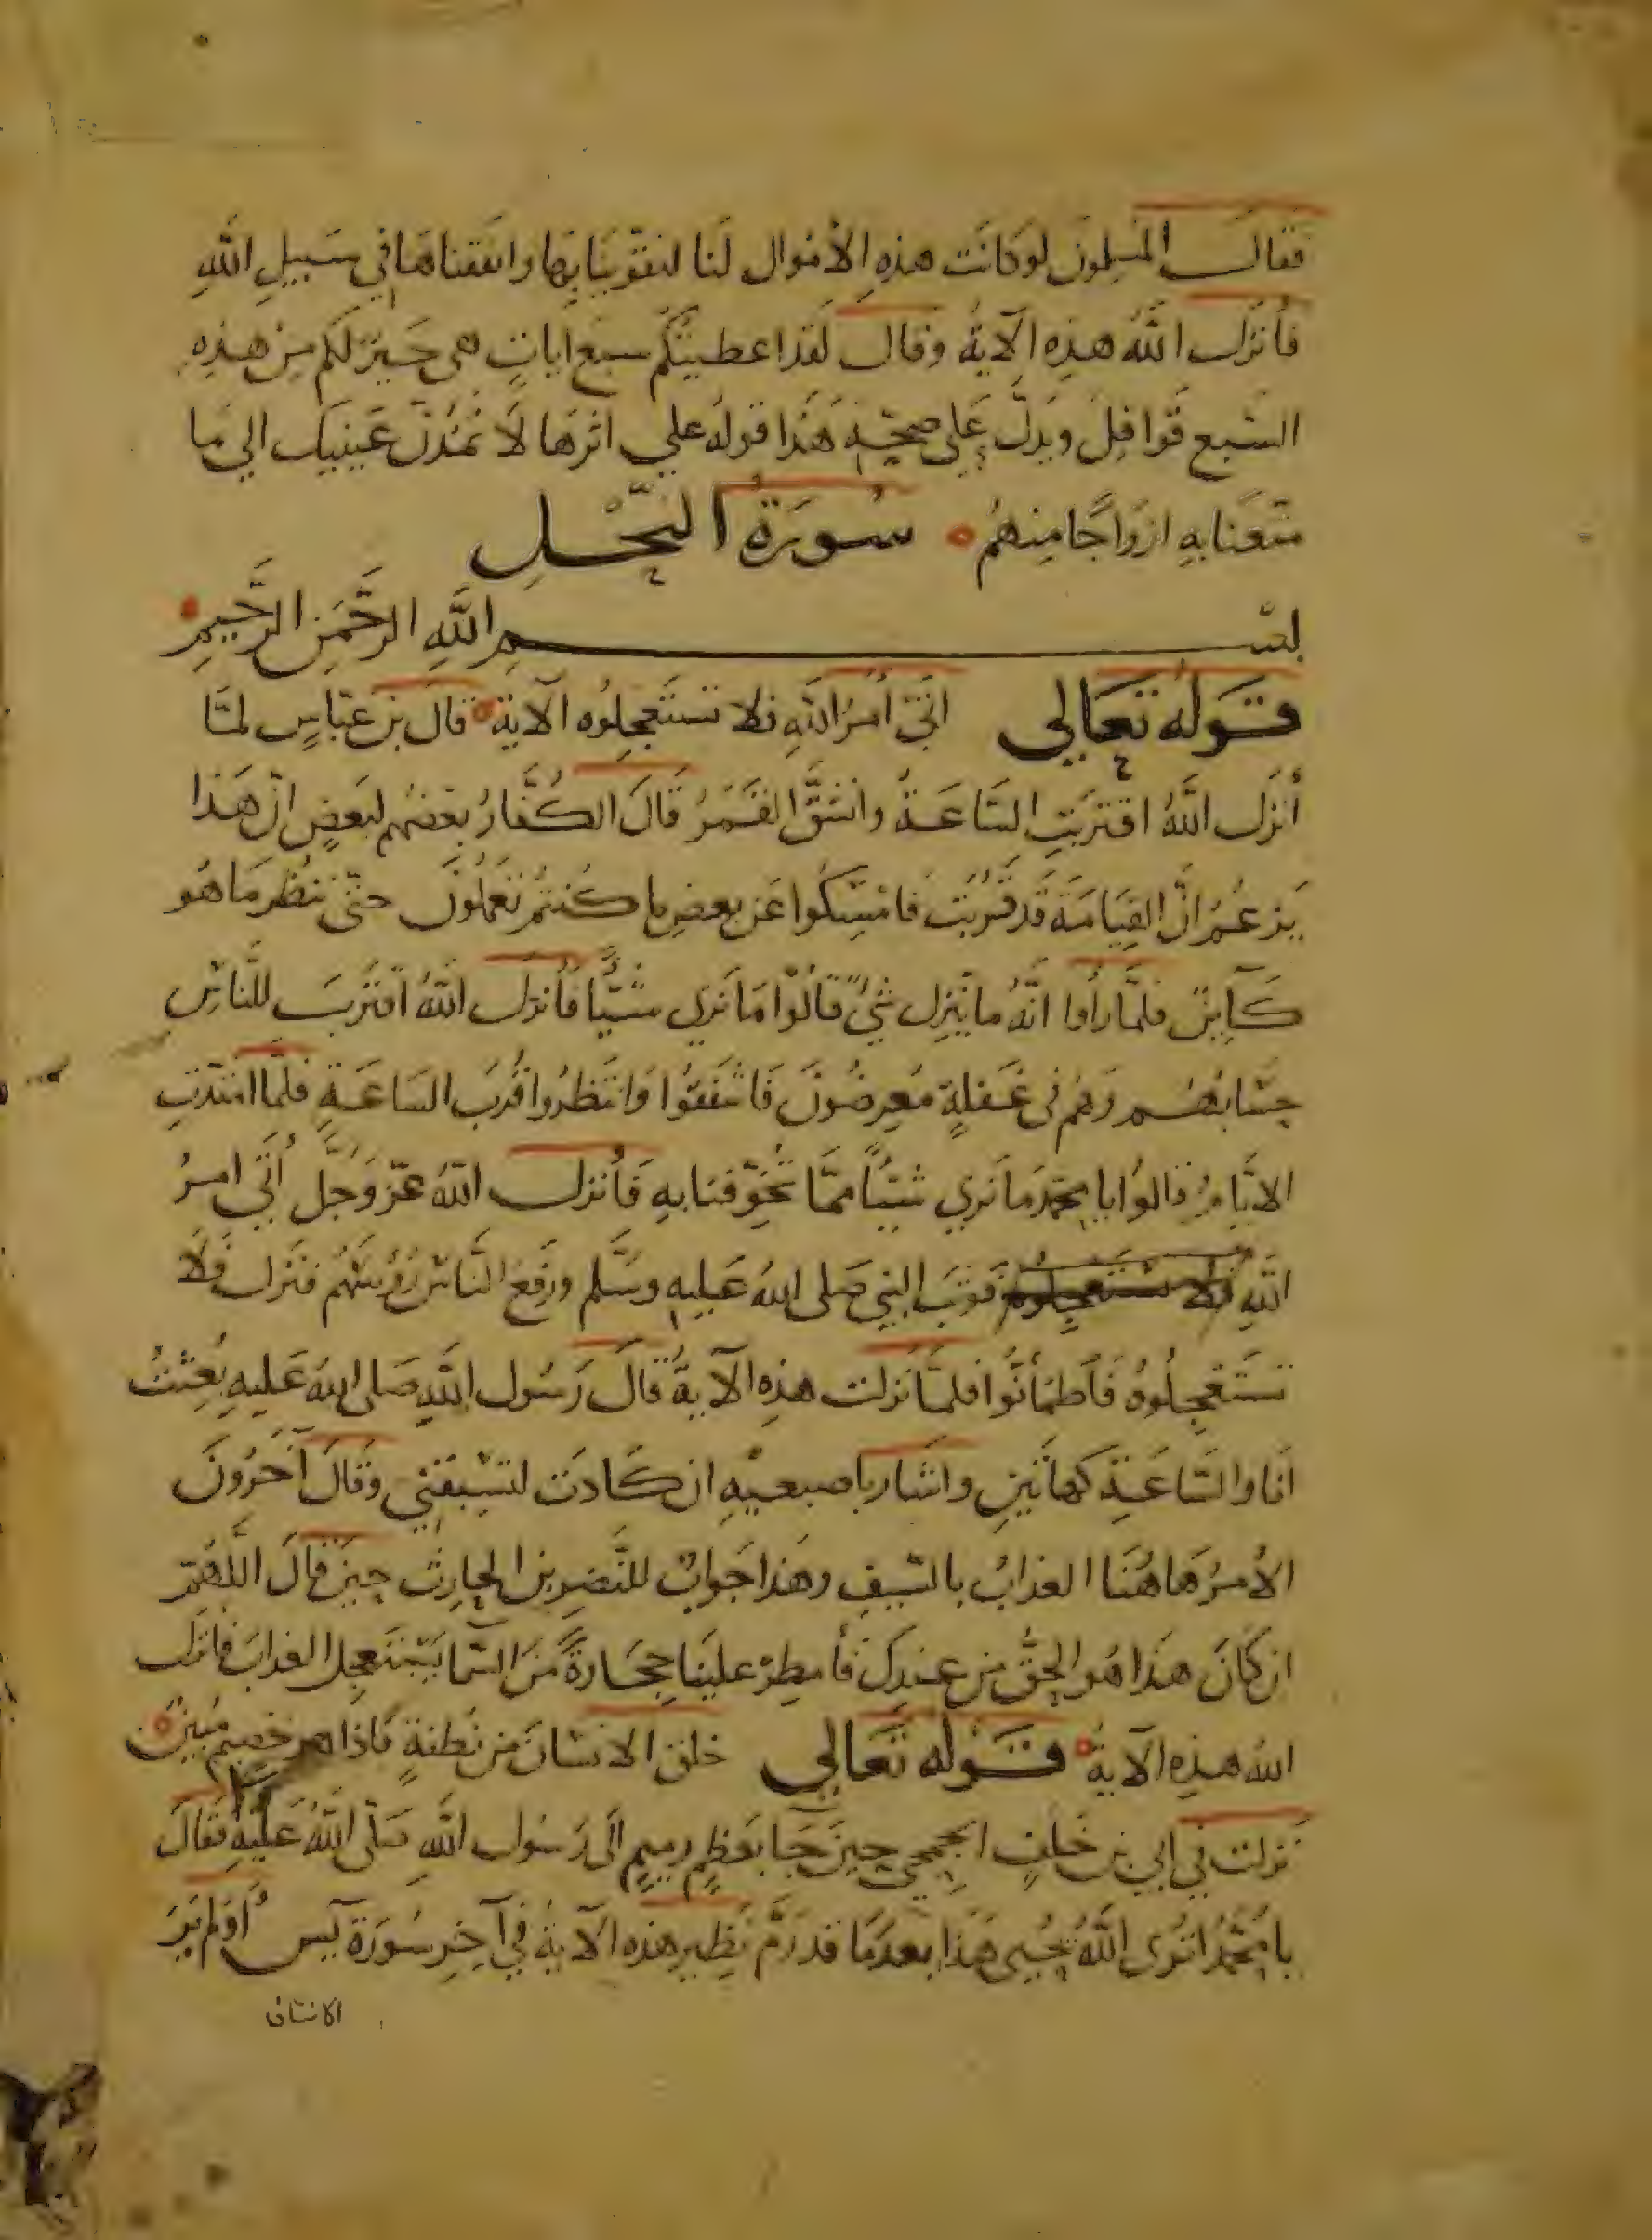 فقالــ المسلمون لو كانت هذه الأموال لنا لتقوّينا بها وانفقناها في سبيل الله
فأنزل الله هذه الآية وقال لقد اعطيتكم سبع ايات هي خير لكم من هذه
السبع قوافل ويدلّ على صحّة هذا قوله علي اثرها لا تمدّن عينيك الي ما
متعنا به ازواجا منهم ه سورة النحل
بسم الله الرحمن الرحيم
قوله تعالي اتي أمر الله فلا تستعجلوه الآية ه قال بن عباس لمّا
أنزل الله اقتربت الساعة وانشق القمر قال الكفار بعضهم لبعض ان هذا
يزعم ان القيامة قد قربت فامسكوا عن بعض ما كنتم تعملون حتى ننظر ما هو
كآين فلمّا رأوا انّه ما ينزل شيء قالوا ما نري شيّا فأنزل الله اقترب للناس
حسابهم وهم في غفلة معرضون فاشفقوا وانتظروا قرب الساعة فلمّا امتدت
الايّام قالوا يا محمد ما نري شيئا ممّا تخوّفنا به فأنزل الله عز وجل أتي امر
الله فلا تستعجلوه فوثب النبي صلى الله عليه وسلم ورفع الناس رؤسهم فنزل فلا
تستعجلوه فأطمأنّوا فلمّا نزلت هذه الآية قال رسول الله صلى الله عليه بعثت
انا والساعة كهاتين واشار باصبعيه ان كادت لتسبقني وقال آخرون
الأمر هاهنا العذاب بالسيف وهذا جواب للنضر بن الحارث حين قال اللهم
ان كان هذا هو الحق من عندك فأمطر علينا حجارة من السما يستعجل العذاب فانزل
الله هذه الآية ه قوله تعالي خلق الانسان من نطفة فاذا هو خصيم مبين ه
نزلت في ابي بن خلف الجمحي حين جا بعظم رميم الى رسول الله صلى الله عليه فقال
يا محمد اترى الله يحيى هذا بعد ما قد رمّ نظير هذه الآية في آخر سورة يس أولم ير
الانسان